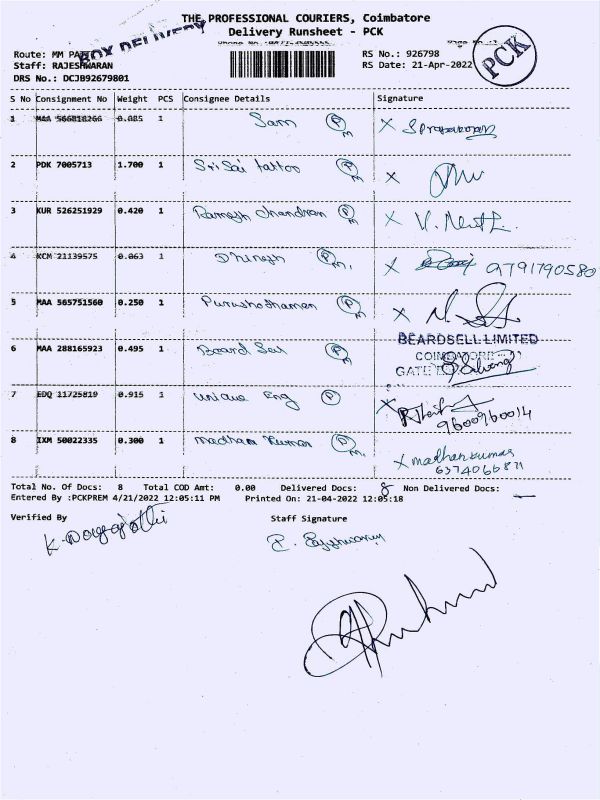 THE PROFESSIONAL COURIERS, Coimbatore
Delivery Runsheet - PCK
BOX DELIVERY
PCK
Route: MM
Staff: RAJESHWARAN
DRS No.: DCJB92679801
RS No.: 926798
RS Date: 21-Apr-2022
S No Consignment No Weight PCS Consignee Details Signature
1 MAA 566818266 0.085 1 Sam P M
2 PDK 7005713 1.700 1 Sri Sai tattoo P M
3 KUR 526251929 0.420 1 Ramesh chandran P M V.
4 KCM 21139575 0.063 1 Dhinesh P M. 9791790580
5 MAA 565751560 0.250 1 Purushothaman P M
BEARDSELL LIMITED
COIMBATORE
GATE
6 MAA 288165923 0.495 1 Beard Sel P M
7 EDQ 11725819 0.915 1 unique Eng P 9600960014
8 IXM 50022335 0.300 1 madhan kumar P M. madhankumar
6374066871
Total No. Of Docs: 8 Total COD Amt: 0.00 Delivered Docs: 8 Non Delivered Docs: —
Entered By :PCKPREM 4/21/2022 12:05:11 PM Printed On: 21-04-2022 12:05:18
Verified By Staff Signature